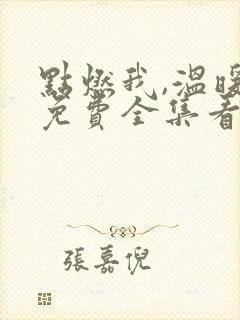 點燃我,溫暖
免費全集看
張嘉倪